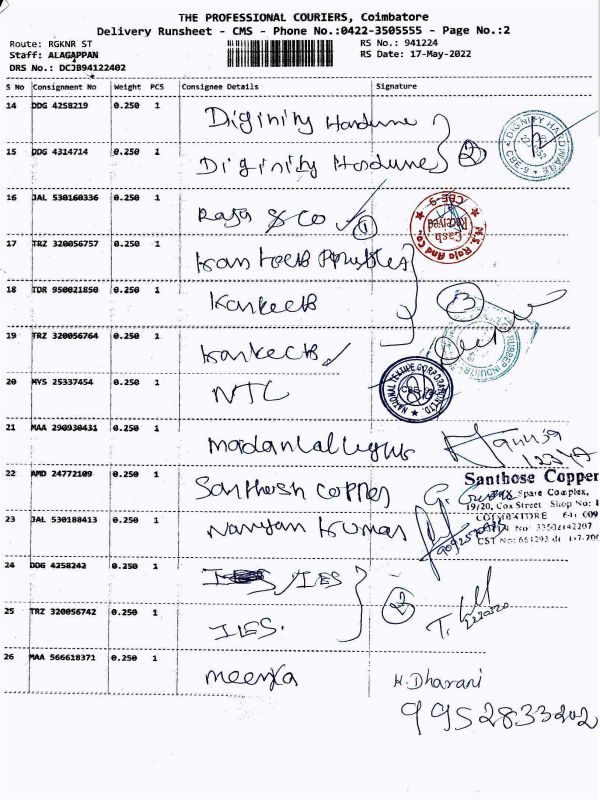 THE PROFESSIONAL COURIERS, Coimbatore
Delivery Runsheet - CMS - Phone No.:0422-3505555 - Page No.:2
Route: RGKNR ST
RS No.: 941224
Staff: ALAGAPPAN
RS Date: 17-May-2022
DRS No.: DCJB94122402
S No Consignment No Weight PCS Consignee Details Signature
14 DDG 4258219 0.250 1 Diginity Hardware
DIGNITY HARDWARE CBE-9
15 DDG 4314714 0.250 1 Diginity Hardware 2
16 JAL 530160336 0.250 1 Raja & Co 1
M.S. Raja And Co Cash Received CBE-9
17 TRZ 320056757
0.250 1
18 TDR 950021850 0.250 1 3
19 TRZ 320056764 0.250 1
RUBBER INDUSTRY
20 MYS 25337454 0.250 1 NTC
NATIONAL TEXTILE CORPORATION LTD.
21 MAA 290930431 0.250 1 madanlal
22 AMD 24772109 0.250 1 Santhosh copper
Santhose Copper
Spare Complex,
19/20, Cox Street Shop No: 1
COIMBATORE
23 JAL 530188413 0.250 1 Narayan Kumar
24 DDG 4258242 0.250 1 /IES 2
25 TRZ 320056742 0.250 1 IES.
26 MAA 566618371 0.250 1 meenka
H. Dharani
9952833202